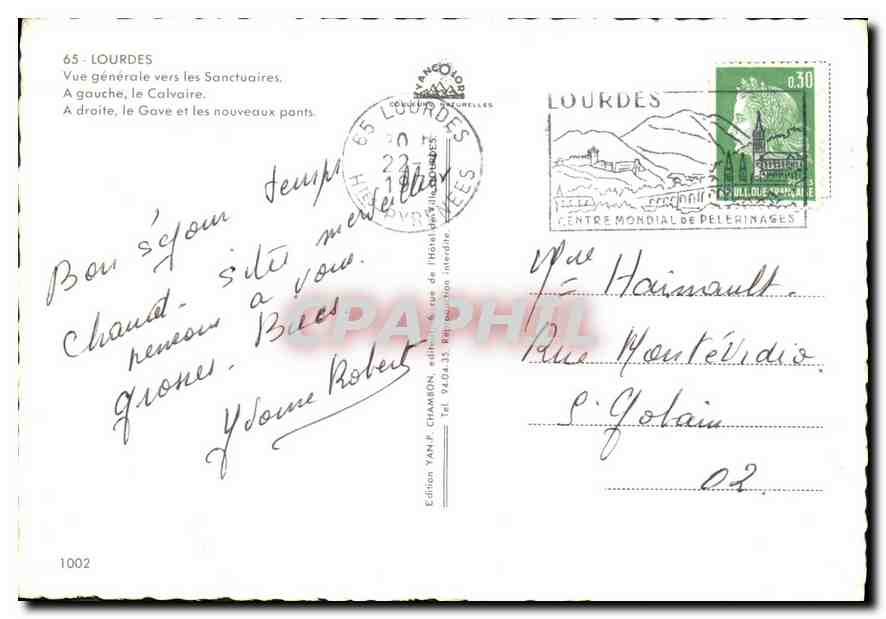 65 - LOURDES
Vue générale vers les Sanctuaires.
A gauche, le Calvaire.
A droite, le Gave et les nouveaux ponts.
YANCOLOR
COULEURS NATURELLES
65 LOURDES
22-7
HTES PYRENEES
LOURDES
CENTRE MONDIAL de PELERINAGES
0,30
REPUBLIQUE FRANCAISE
Bon séjour temps
chaud. sites merveilleux
pensons à vous.
grosses Bises
Yvonne Robert
Edition YAN-P. CHAMBON, éditeur, 6, rue de l'Hôtel de Ville, LOURDES.
Tel. 94.04.35. Reproduction interdite.
Mme Hainault.
Rue Montévidio
St Gobain
02.
1002
CPAPHIL